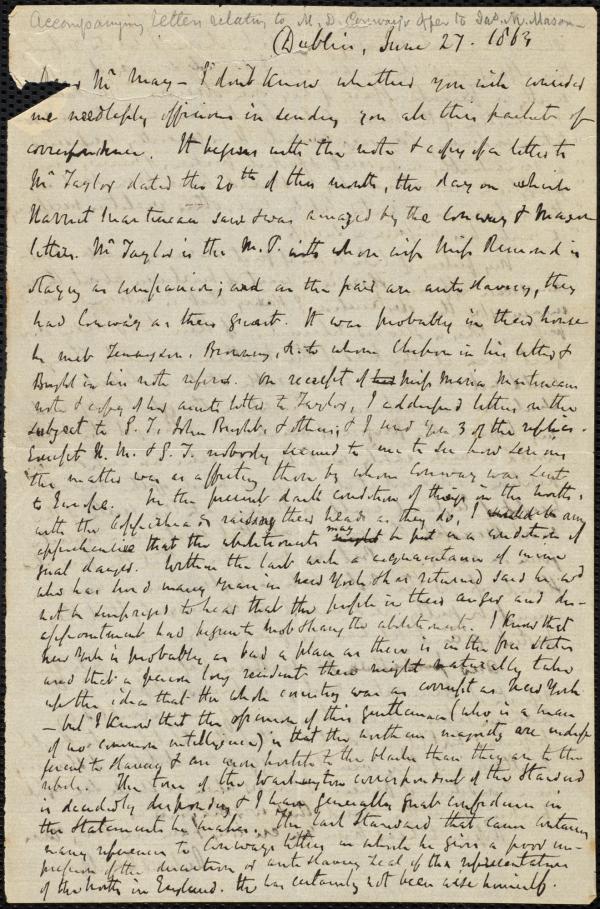 Accompanying letters relating to M. D. Conway's offer to Jas. M. Mason—
Dublin, June 27. 1863
Dear Mr May — I don't know whether you will consider
me needlessly officious in sending you all this packet of
correspondence. It begins with the note & copy of a letter to
Mr Taylor dated the 20th of this month, the day on which
Harriet Martineau saw & was amazed by the Conway & Mason
letters. Mr Taylor is the M.P. with whose wife Miss Remond is
staying as companion; and as the pair are anti slavery, they
had Conway as their guest. It was probably in their house
he met Tennyson, Browning, &c to whom Chesson in his letter &
Bright in his note refers. On receipt of Miss Maria Martineau's
note & copy of her aunt's letter to Taylor, I addressed letters on the
subject to G. T., John Bright, & others; & I send you 3 of the replies.
Except H. M. & G. T. nobody seemed to me to see how serious
the matter was as affecting those by whom Conway was sent
to Europe. In the present dark condition of things in the north,
with the copperheads raising their heads as they do, I am
apprehensive that the abolitionists may be put in a condition of
great danger. Within the last week a acquaintance of mine
who has lived many years in New York & has returned said he wd
not be surprised to hear that the people in their anger and dis-
appointment had begun to mob & hang the abolitionists. I know that
New York is probably as bad a place as there is in the free states
and that a person long resident there might naturally take
up the idea that the whole country was as corrupt as New York
— but I know that the opinion of this gentleman (who is a man
of no common intelligence) is that the northern majority are indif-
ferent to slavery & are more hostile to the blacks than they are to the
rebels. The tone of the Washington correspondent of the Standard
is decidedly desponding & I have generally great confidence in
the statements he makes. The last Standard that came contains
many references to Conway's letters in which he gives a poor im-
pression of the discretion or anti slavery zeal of the representatives
of the North in England. He has certainly not been wise himself.